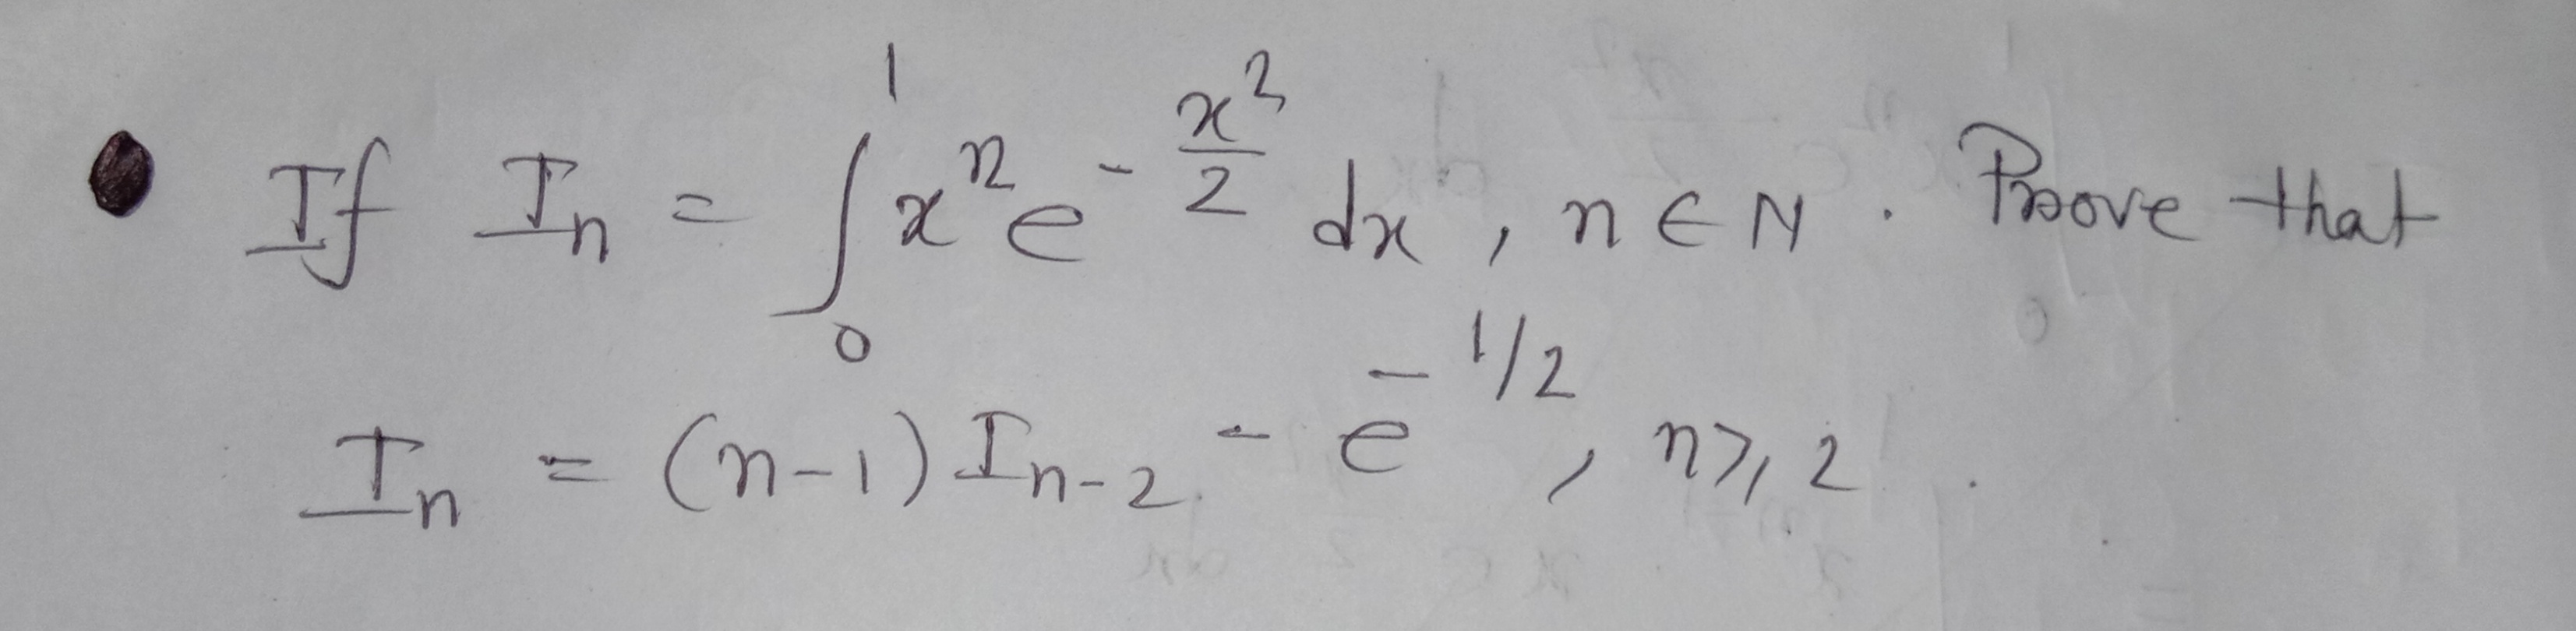 • If Iₙ = ∫₀¹ xⁿ e^(-x²/2) dx, n ∈ N. Prove that
Iₙ = (n-1) Iₙ₋₂ - e^(-1/2), n ≥ 2.